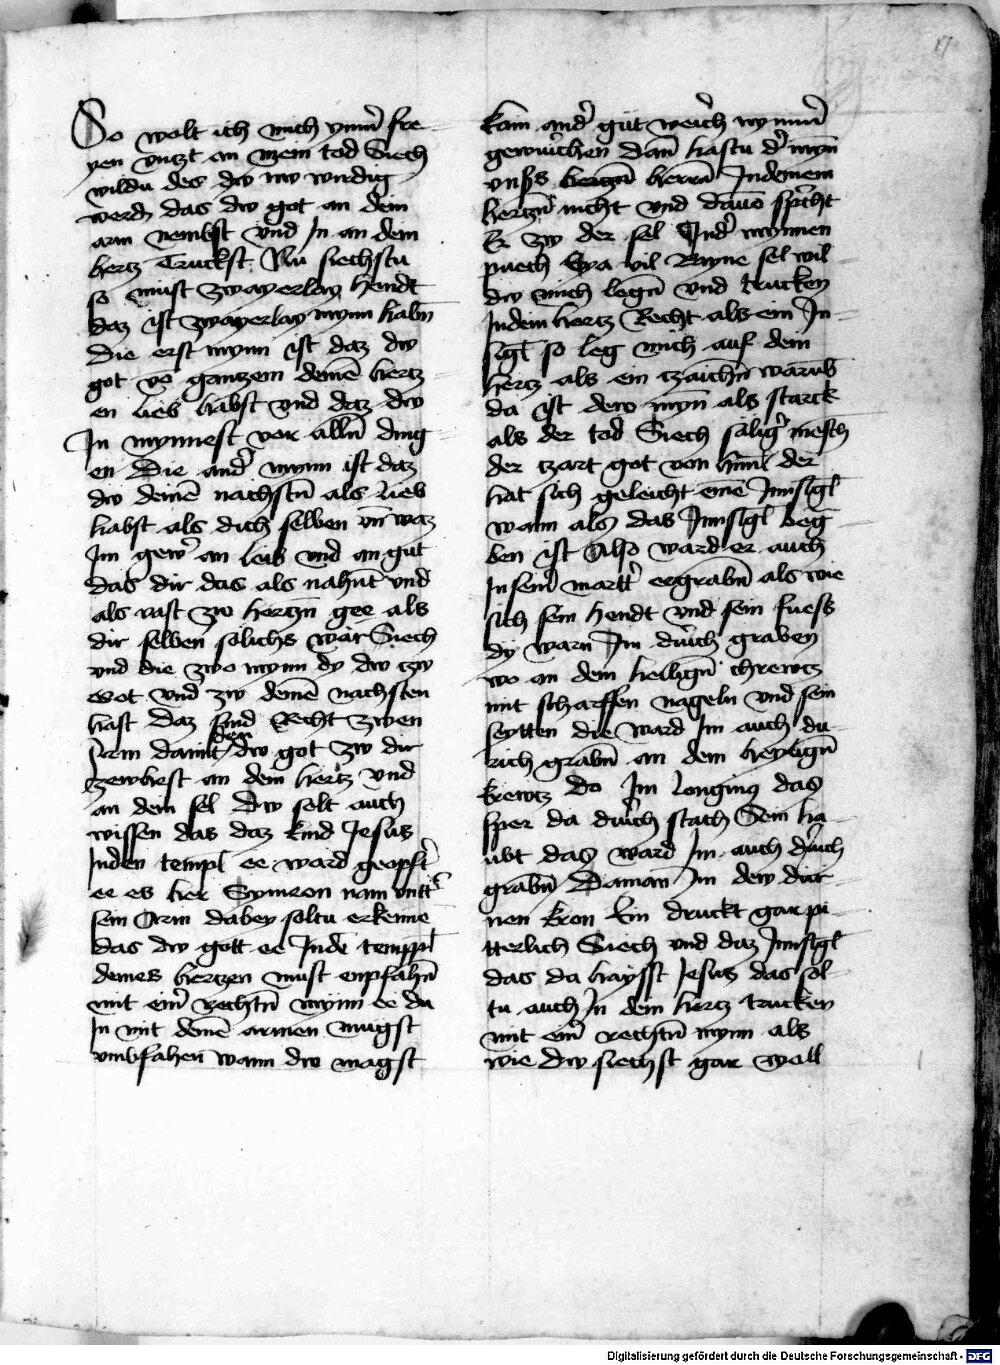 17
So wolt ich mich ymm̄ fre-
yen vntzt an mein tod Siech
wildu des dw nw wirdig
werdn das dw got an dem
arm nembst vnd In an dem
hertz Truckst Nu siechstu
so must zwayerlay hendt
daz ist zwayerlay mynn habn̄
Die erst mynn ist daz dw
got vō gantzem deinē hertz-
en lieb habst vnd daz dw
In mynnest vor alln̄ ding-
en Die and̾ mynn ist daz
dw deinē nachstn̄ als lieb
habst als dich selben vn̄ waz
Im gew̾ an leib vnd an gut
das dir das als nahn̄t vnd
als vast zw hertzn̄ gee als
dir selben solichs wär Siech
vnd die zwo mynn dy dw tzw
Got vnd zw deinē nachsten
hast daz sind Recht zwen
Arm damit den dw got zw dir
zewhest an dem hertz vnd
an dein sel Dw solt auch
wissen das daz kind Jesus
Inden templ ee ward geopft̾
ee es her Symeon nam vntt̾
sein Arm dabey soltu erkenne
das dw gott ee Inde templ̄
deines hertzen must enpfahn̄
mit ein̄ rechtn̄ mynn ee du
In mit deinē armen mugst
vmbfahen wann dw magst
kain and̾ güt weich̾ mynn̄
gewu̾chen dan̄ hastu d̾ myn̄
vnss herrn̄ Indeinem
hertzn̄ nicht vnd dauō spricht
Er zw der sel Ind̾ mynnen
puech Eya vil Rayne sel wil-
dw mich legn̄ vnd trucken
Indein hertz Recht als ein In-
sigl̄ so leg mich auf dein
hertz als ein tzaichn̄ warūb
da ist dew myn̄ als starck
als der tod Siech sälig̾ mēsch
der tzart got von hym̄l der
hat sich geleicht einē Innsigl̄
wann als das Innsigl̄ begra-
ben ist Also ward er auch
Insein̾ martt̾ ergrabn̄ als wie
sich sein hendt vnd sein fuess
dy warn Im durch graben
wo an dem heilign̄ chrewtz
mit scharffen nageln vnd sein
seytten die ward Im auch du-
rich grabn̄ an dem heylign̄
krewtz do Im Longinus das
sper da durch stach Sein ha-
ubt das ward Im auch durich
grabn̄ Daman Im dew dür-
nen kron Ein druckt gar pi-
tterlich Siech vnd daz Innsigl̄
das da haysst Jesus das sol-
tu auch In dein hertz trucken
mit ein̾ rechtn̄ mynn als
wie dw siechst gar woll
Digitalisierung gefördert durch die Deutsche Forschungsgemeinschaft - DFG